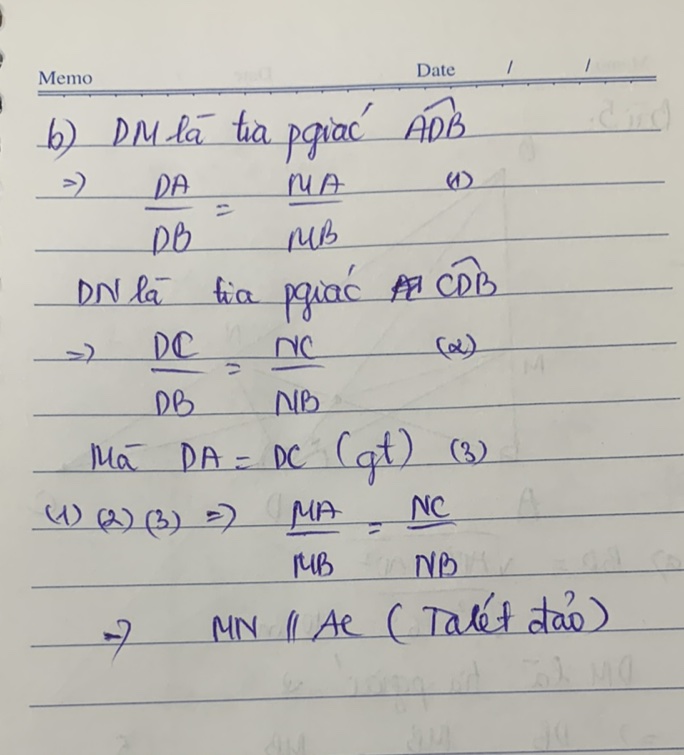 Memo Date / /
b) DM là tia pgiác ADB
=> DA/DB = MA/MB (1)
DN là tia pgiác CDB
=> DC/DB = NC/NB (2)
Mà DA = DC (gt) (3)
(1) (2) (3) => MA/MB = NC/NB
=> MN // AC (Talét đảo)